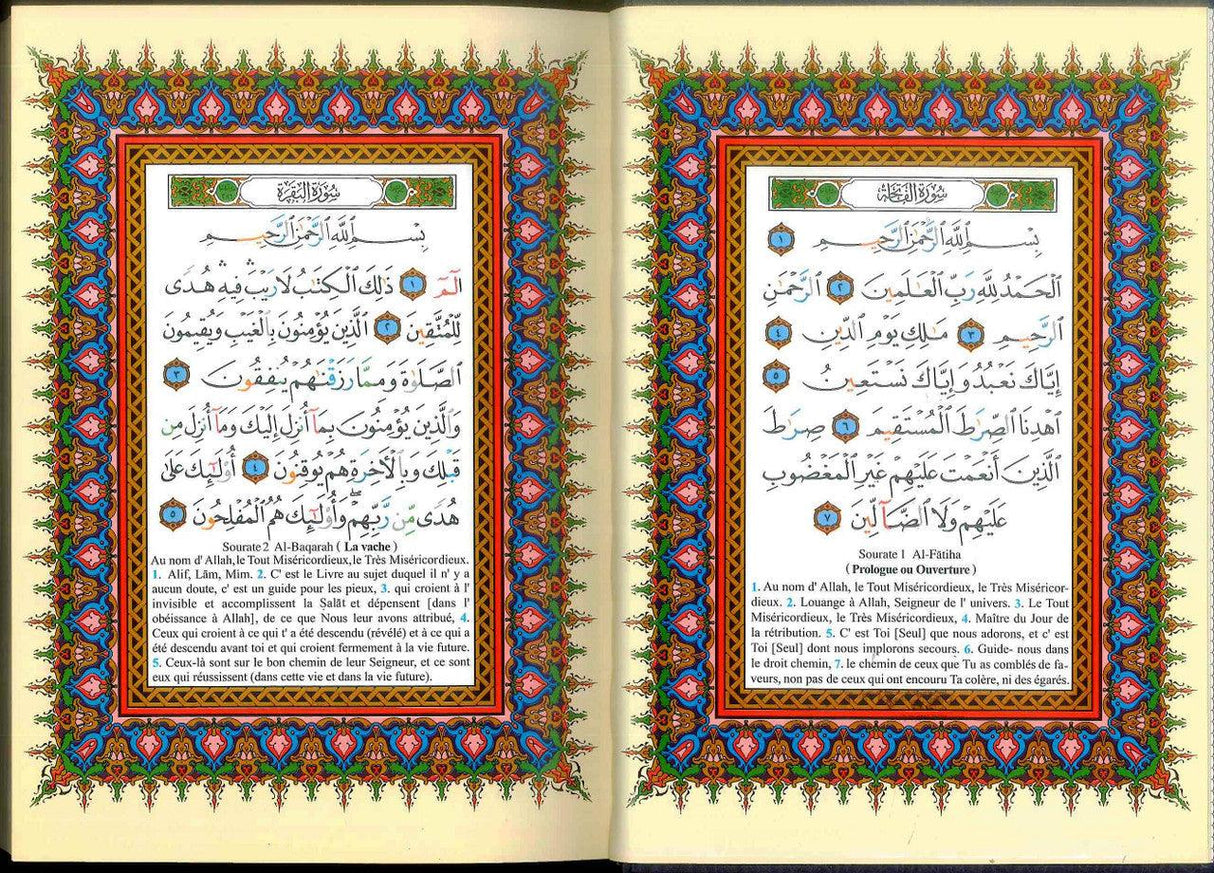 سُورَةُ الفَاتِحَةِ
بِسْمِ ٱللَّهِ ٱلرَّحْمَٰنِ ٱلرَّحِيمِ ١
ٱلْحَمْدُ لِلَّهِ رَبِّ ٱلْعَٰلَمِينَ ٢ ٱلرَّحْمَٰنِ
ٱلرَّحِيمِ ٣ مَٰلِكِ يَوْمِ ٱلدِّينِ ٤
إِيَّاكَ نَعْبُدُ وَإِيَّاكَ نَسْتَعِينُ ٥
ٱهْدِنَا ٱلصِّرَٰطَ ٱلْمُسْتَقِيمَ ٦ صِرَٰطَ
ٱلَّذِينَ أَنْعَمْتَ عَلَيْهِمْ غَيْرِ ٱلْمَغْضُوبِ
عَلَيْهِمْ وَلَا ٱلضَّآلِّينَ ٧
Sourate 1 Al-Fātiha
( Prologue ou Ouverture )
1. Au nom d' Allah, le Tout Miséricordieux, le Très Miséricor-
dieux. 2. Louange à Allah, Seigneur de l' univers. 3. Le Tout
Miséricordieux, le Très Miséricordieux, 4. Maître du Jour de
la rétribution. 5. C' est Toi [Seul] que nous adorons, et c' est
Toi [Seul] dont nous implorons secours. 6. Guide- nous dans
le droit chemin, 7. le chemin de ceux que Tu as comblés de fa-
veurs, non pas de ceux qui ont encouru Ta colère, ni des égarés.
سُورَةُ البَقَرَةِ
بِسْمِ ٱللَّهِ ٱلرَّحْمَٰنِ ٱلرَّحِيمِ
الٓمٓ ١ ذَٰلِكَ ٱلْكِتَٰبُ لَا رَيْبَ ۛ فِيهِ ۛ هُدًى
لِّلْمُتَّقِينَ ٢ ٱلَّذِينَ يُؤْمِنُونَ بِٱلْغَيْبِ وَيُقِيمُونَ
ٱلصَّلَوٰةَ وَمِمَّا رَزَقْنَٰهُمْ يُنفِقُونَ ٣
وَٱلَّذِينَ يُؤْمِنُونَ بِمَآ أُنزِلَ إِلَيْكَ وَمَآ أُنزِلَ مِن
قَبْلِكَ وَبِٱلْأَخِرَةِ هُمْ يُوقِنُونَ ٤ أُو۟لَٰٓئِكَ عَلَىٰ
هُدًى مِّن رَّبِّهِمْ ۖ وَأُو۟لَٰٓئِكَ هُمُ ٱلْمُفْلِحُونَ ٥
Sourate 2 Al-Baqarah ( La vache )
Au nom d' Allah, le Tout Miséricordieux, le Très Miséricordieux.
1. Alif, Lām, Mim. 2. C' est le Livre au sujet duquel il n' y a
aucun doute, c' est un guide pour les pieux, 3. qui croient à l'
invisible et accomplissent la Ṣalāt et dépensent [dans l'
obéissance à Allah], de ce que Nous leur avons attribué, 4.
Ceux qui croient à ce qui t' a été descendu (révélé) et à ce qui a
été descendu avant toi et qui croient fermement à la vie future.
5. Ceux-là sont sur le bon chemin de leur Seigneur, et ce sont
eux qui réussissent (dans cette vie et dans la vie future).